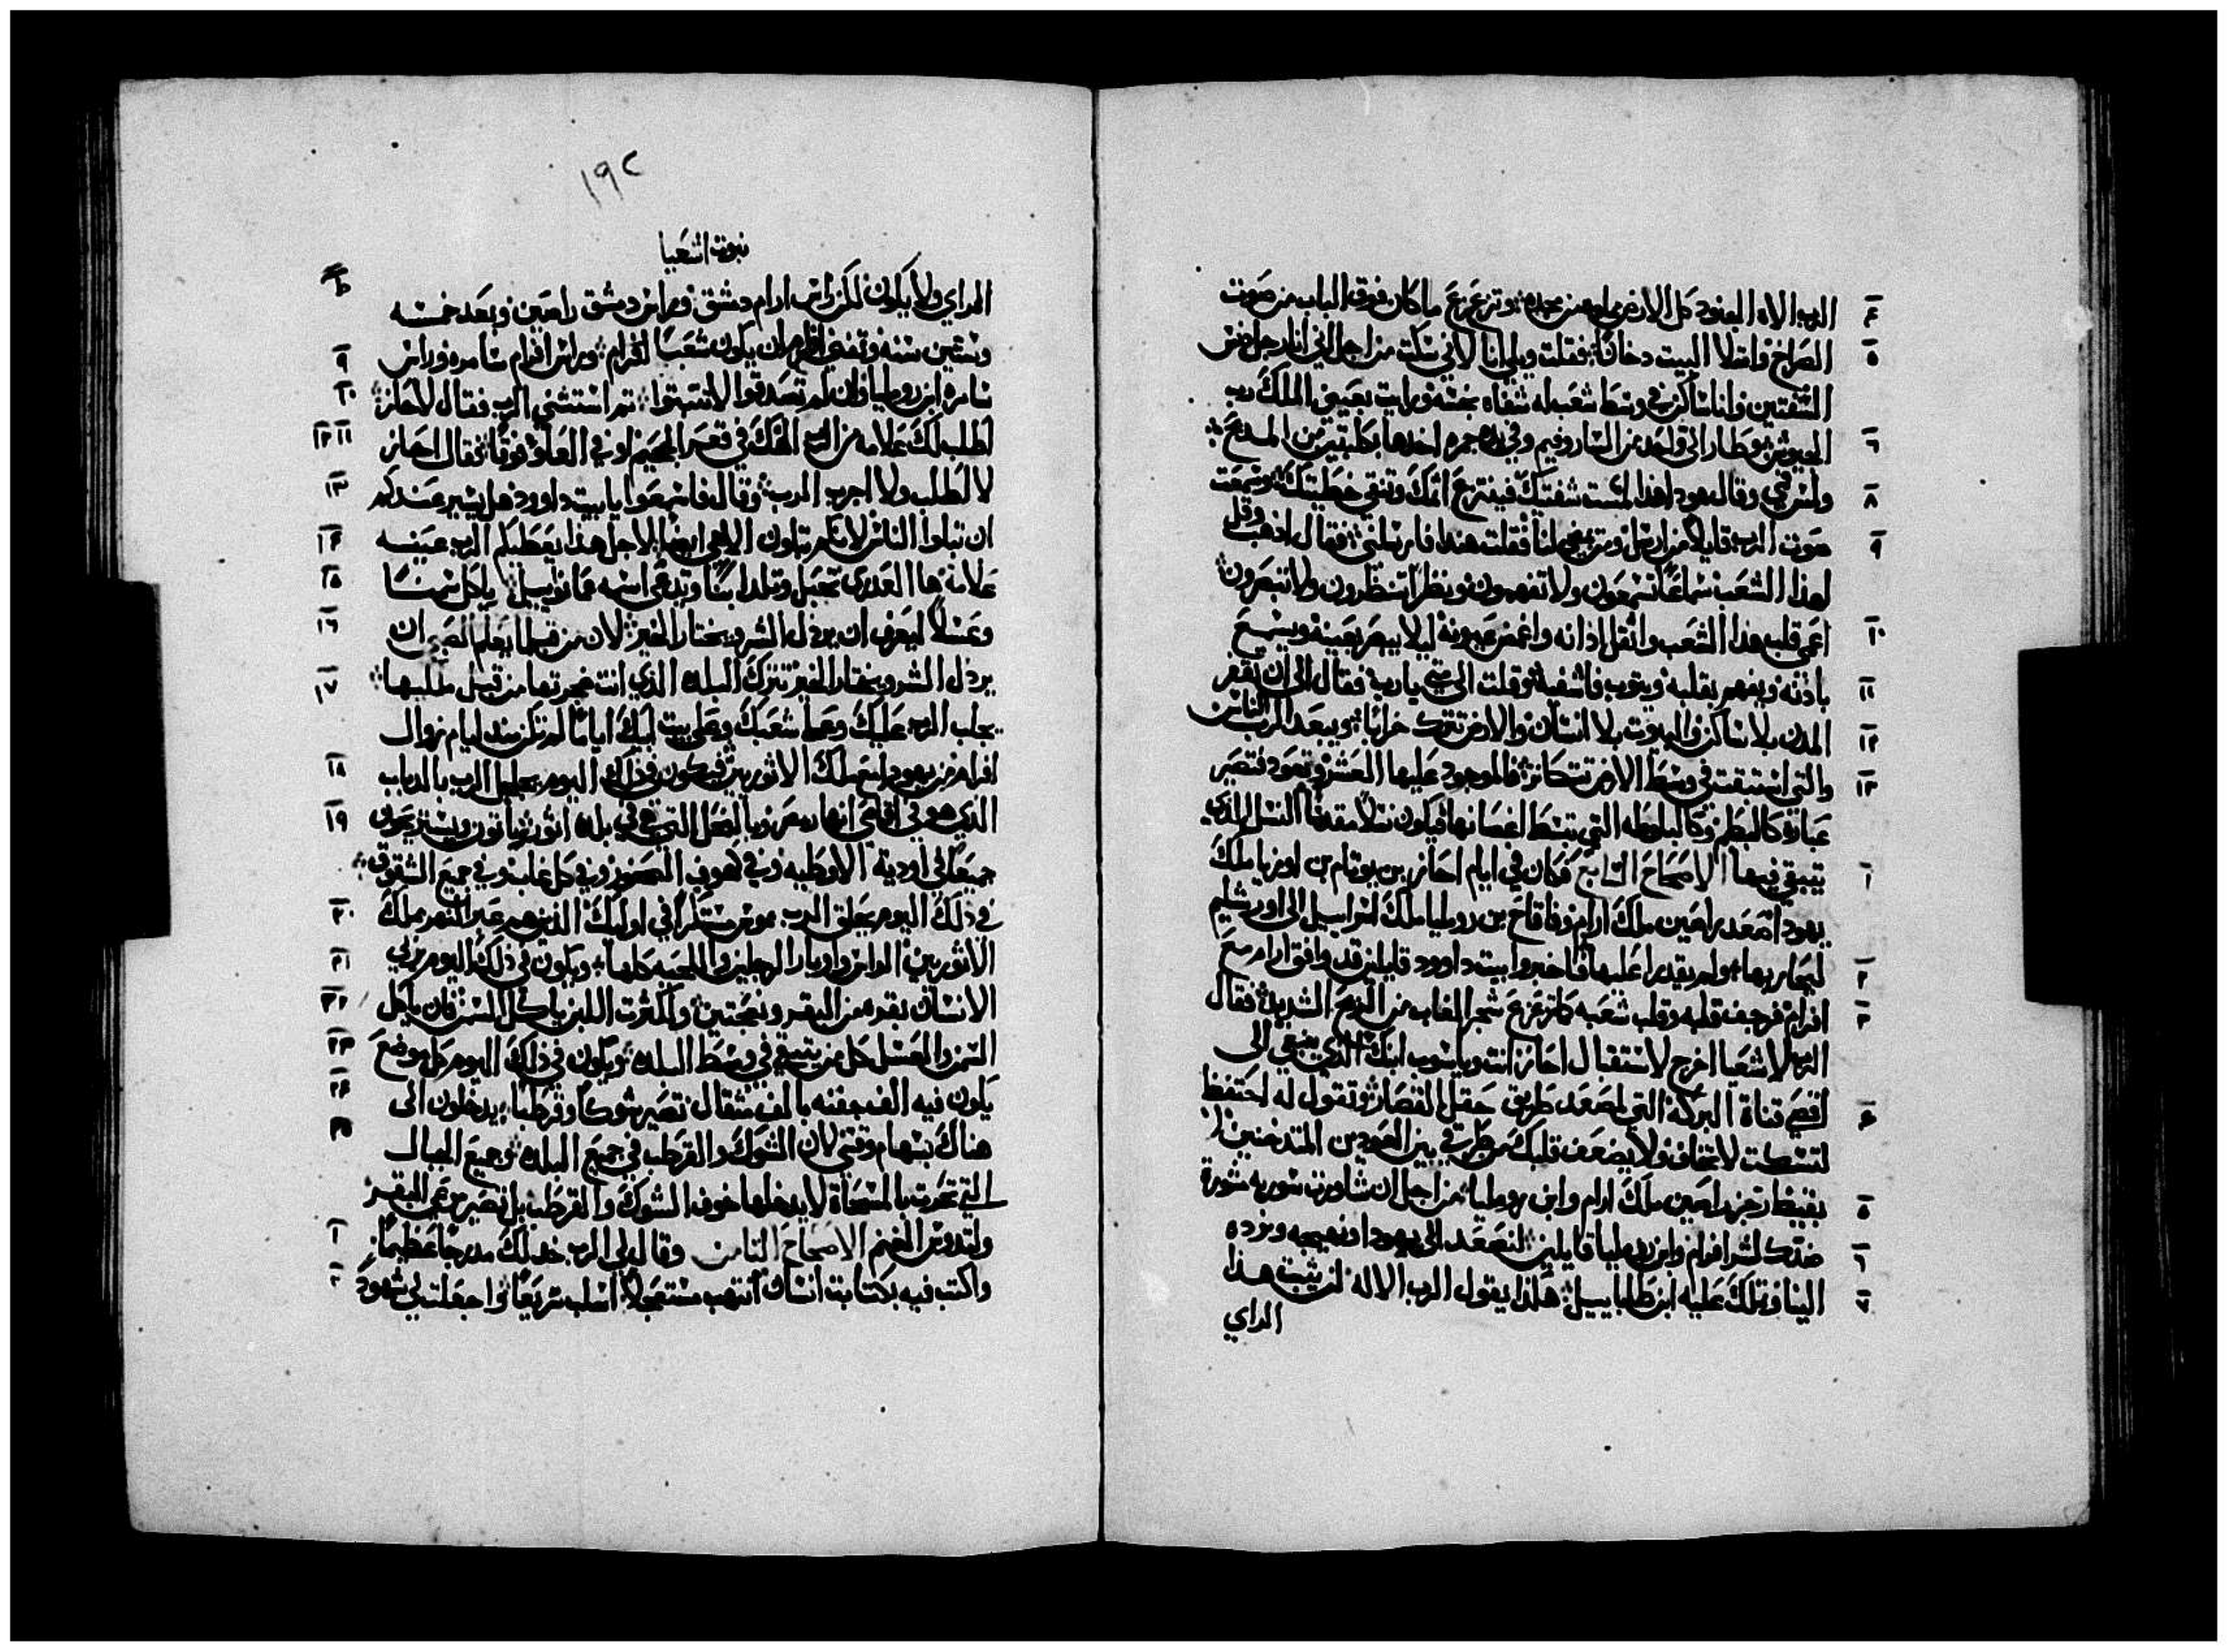 الرب الاه الجنود كل الارض من مجده وتزعزع ما كان فوق الباب من صوت ٤
الصراخ وامتلا البيت دخانًا فقلت ويلي انا لاني سكت من اجل اني انا رجل دنس ٥
الشفتين وانا ساكن في وسط شعب له شفاه نجسه ورايت بعيني الملك رب
الجيوش وطار الي واحد من الساروفيم وفي يده جمره اخدها بكلبتين من المدبح ٦
ولمس فمي وقال هودا هذا لمست شفتيك فينتزع اتمك وتنقي خطيتك وسمعت ٨
صوت الرب قايلا من ارسل ومن يمضي لنا فقلت هندا فارسلني فقال اذهب وقل ٩
لهذا الشعب سماعًا تسمعون ولا تفهمون ونظرا تنظرون ولا تبصرون
اعمي قلب هذا الشعب واثقل اذانه واغمض عيونه ليلا يبصر بعينه ويسمع ١٠
باذنه ويفهم بقلبه ويتوب فاشفيه وقلت الي متي يا رب فقال الي ان تقفر ١١
المدن بلا ساكن والبيوت بلا انسان والارض تترك خرابًا ويبعد الرب الناس ١٢
والتي استبقت في وسط الارض تتكاثر فالموجود عليها العشر وتعود فتصير ١٣
عبادة كالبطم وكالبلوطه التي تبسط اغصانها فيكون نسلا مقدسًا النسل الذي
يتبقي فيها الاصحاح السابع فكان في ايام احاز بن يوتام بن اوزيا ملك ١
يهودا صعد راصين ملك ارام وفاقاح بن روميليا ملك اسراييل الي اورشليم
ليحاربها ولم يقدرا عليها فاخبروا بيت داوود قايلين قد وافق ارام مع ٢
افرام فرجف قلبه وقلب شعبه كتزعزع شجر الغاب من الريح الشديده فقال ٣
الرب لاشعيا اخرج لاستقبال احاز انت وياشوب ابنك الذي بقي الي
اقصي قناة البركه التي لمصعد طريق حقل القصار وتقول له احتفظ ٤
لتسكت لا تخاف ولا يضعف قلبك من طرفي بين العودين المتدخنين
بغيظ رجز راصين ملك ارام وابن روميليا من اجل ان شاورت سوريه شورة ٥
ضدك لشر افرام وابن روميليا قايلين لنصعد الي يهودا ونهيجه ونرده ٦
الينا ونملك عليه ابن طاباييل هكذا يقول الرب الاله لن يثبت هذا ٧
الراي
١٩٢
نبوت اشعيا
الراي ولا يكون لكن راس ارام دمشق وراس دمشق راصين وبعد خمسه ٨
وستين سنه وتفني افرام ان يكون شعبًا لافرام وراس افرام سامره وراس ٩
سامره ابن روميليا فان لم تصدقوا لا تثبتوا ثم استثني الرب فقال لاحاز ١٠
اطلب لك علامه من الرب الهك في قعر الجحيم او في العلو فوقًا فقال احاز ١١ ١٢
لا اطلب ولا اجرب الرب وقال فاسمعوا يا بيت داوود هل يسير عندكم ١٣
ان تبلوا الناس لانكم تبلون الاهي ايضا لاجل هذا يعطيكم الرب عينه ١٤
علامة ها العدري تحبل وتلد ابنًا ويدعي اسمه عمانوييل ياكل سمنًا ١٥
وعسلا ليعرف ان يرذل الشر ويختار الخير لان من قبل ما يعلم الصبي ان ١٦
يرذل الشر ويختار الخير تترك البلده الذي انت ضجرتها من قبل ملكيها ١٧
يجلب الرب عليك وعلي شعبك وعلي بيت ابيك ايامًا لم تكن منذ ايام زوال
افرام من يهودا مع ملك الاثوريين فيكون في ذلك اليوم يصفر الرب بالدباب ١٨
الذي هو في اقاصي انهار مصر وبالنحل التي هي في بلده اثور فياتون ويستريحون ١٩
جميعًا في اودية الاوطيه وفي كهوف الصخور وفي كل غابه وفي جميع الشقوق
في ذلك اليوم يحلق الرب بموس مستكرا في اوليك الذين هم عبر النهر بملك ٢٠
الاثوريين الراس واوبار الرجلين واللحيه كلها ويكون في ذلك اليوم يربي ٢١
الانسان بقره من البقر ونعجتين ولكثرت اللبن ياكل السمن فان ياكل ٢٢
السمن والعسل كل من يتبقي في وسط البلده ويكون في ذلك اليوم كل موضع ٢٣
يكون فيه الف جفنه بالف مثقال تصير شوكًا وقرطبًا يدخلون الي ٢٤
هناك بسهام وقسي لان الشوك والقرطب في جميع البلده وجميع الجبال ٢٥
التي تحرث بالمسحاة لا يدخلها خوف الشوك والقرطب بل تصير مرعي البقر
ولتدويس الغنم الاصحاح التامن وقال لي الرب خد لك مدرجًا عظيمًا ١
واكتب فيه بكتابت انسان انتهب مستعجلا اسلب سريعًا واجعلت لي شهود ٢